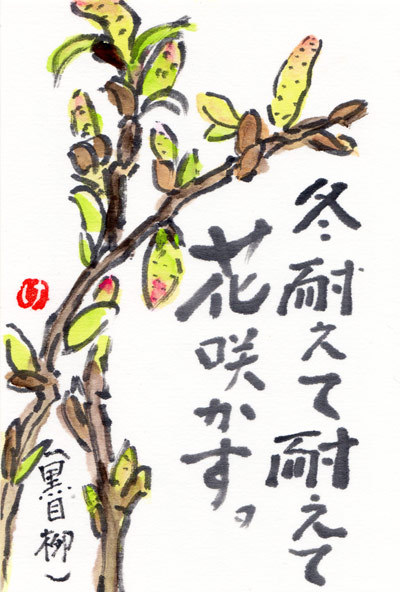 冬耐えて耐えて
花咲かす。
(黒目柳)